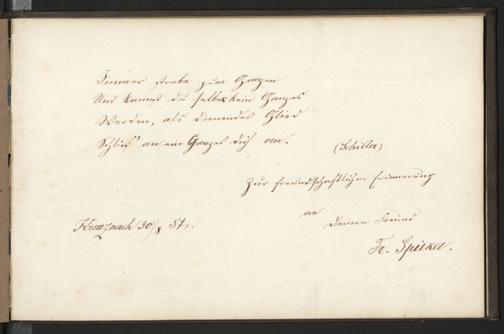 Immer strebe zum Ganzen
Und kannst du selber kein Ganzes
Werden, als dienendes Glied
Schließ' an ein Ganzes dich an.
(Schiller)
Zur freundschaftlichen Erinnerung
an
Deinen Freund
Kreuznach 30/8 54.
Fr. Spieker.